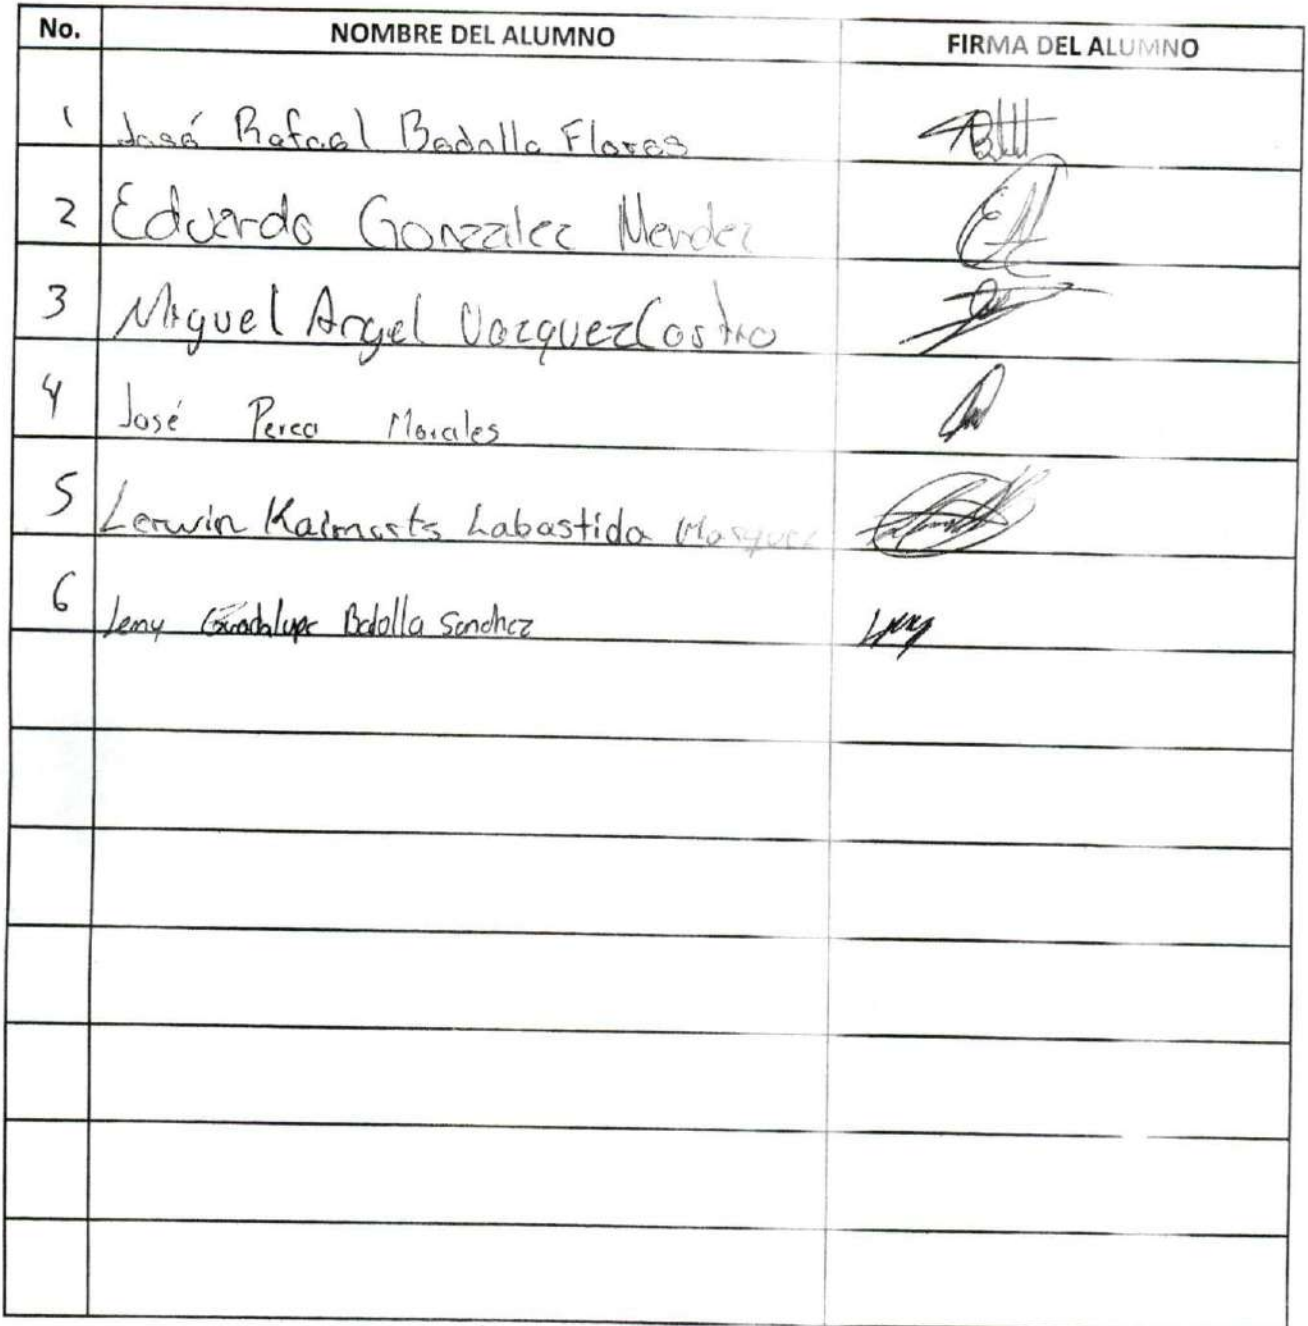 No. NOMBRE DEL ALUMNO FIRMA DEL ALUMNO
1 José Rafael Badolla Flores
2 Eduardo Gonzalez Mendez
3 Miguel Angel Vazquez Castro
4 José Perea Morales
5 Lerwin Labastida Marquez
6 Leny Guadalupe Badolla Sanchez Leny